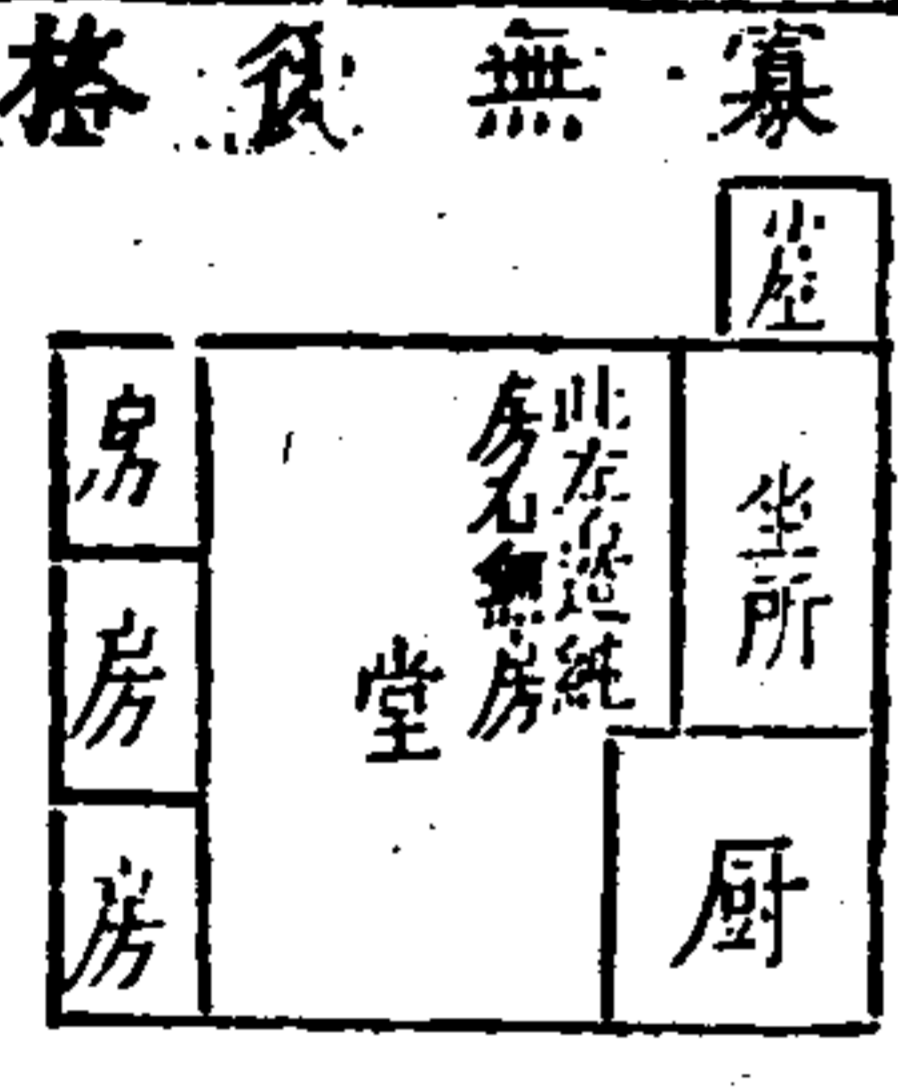 寡無後格
小座
坐所
厨
此左邊純
房右無房
堂
房
房
房